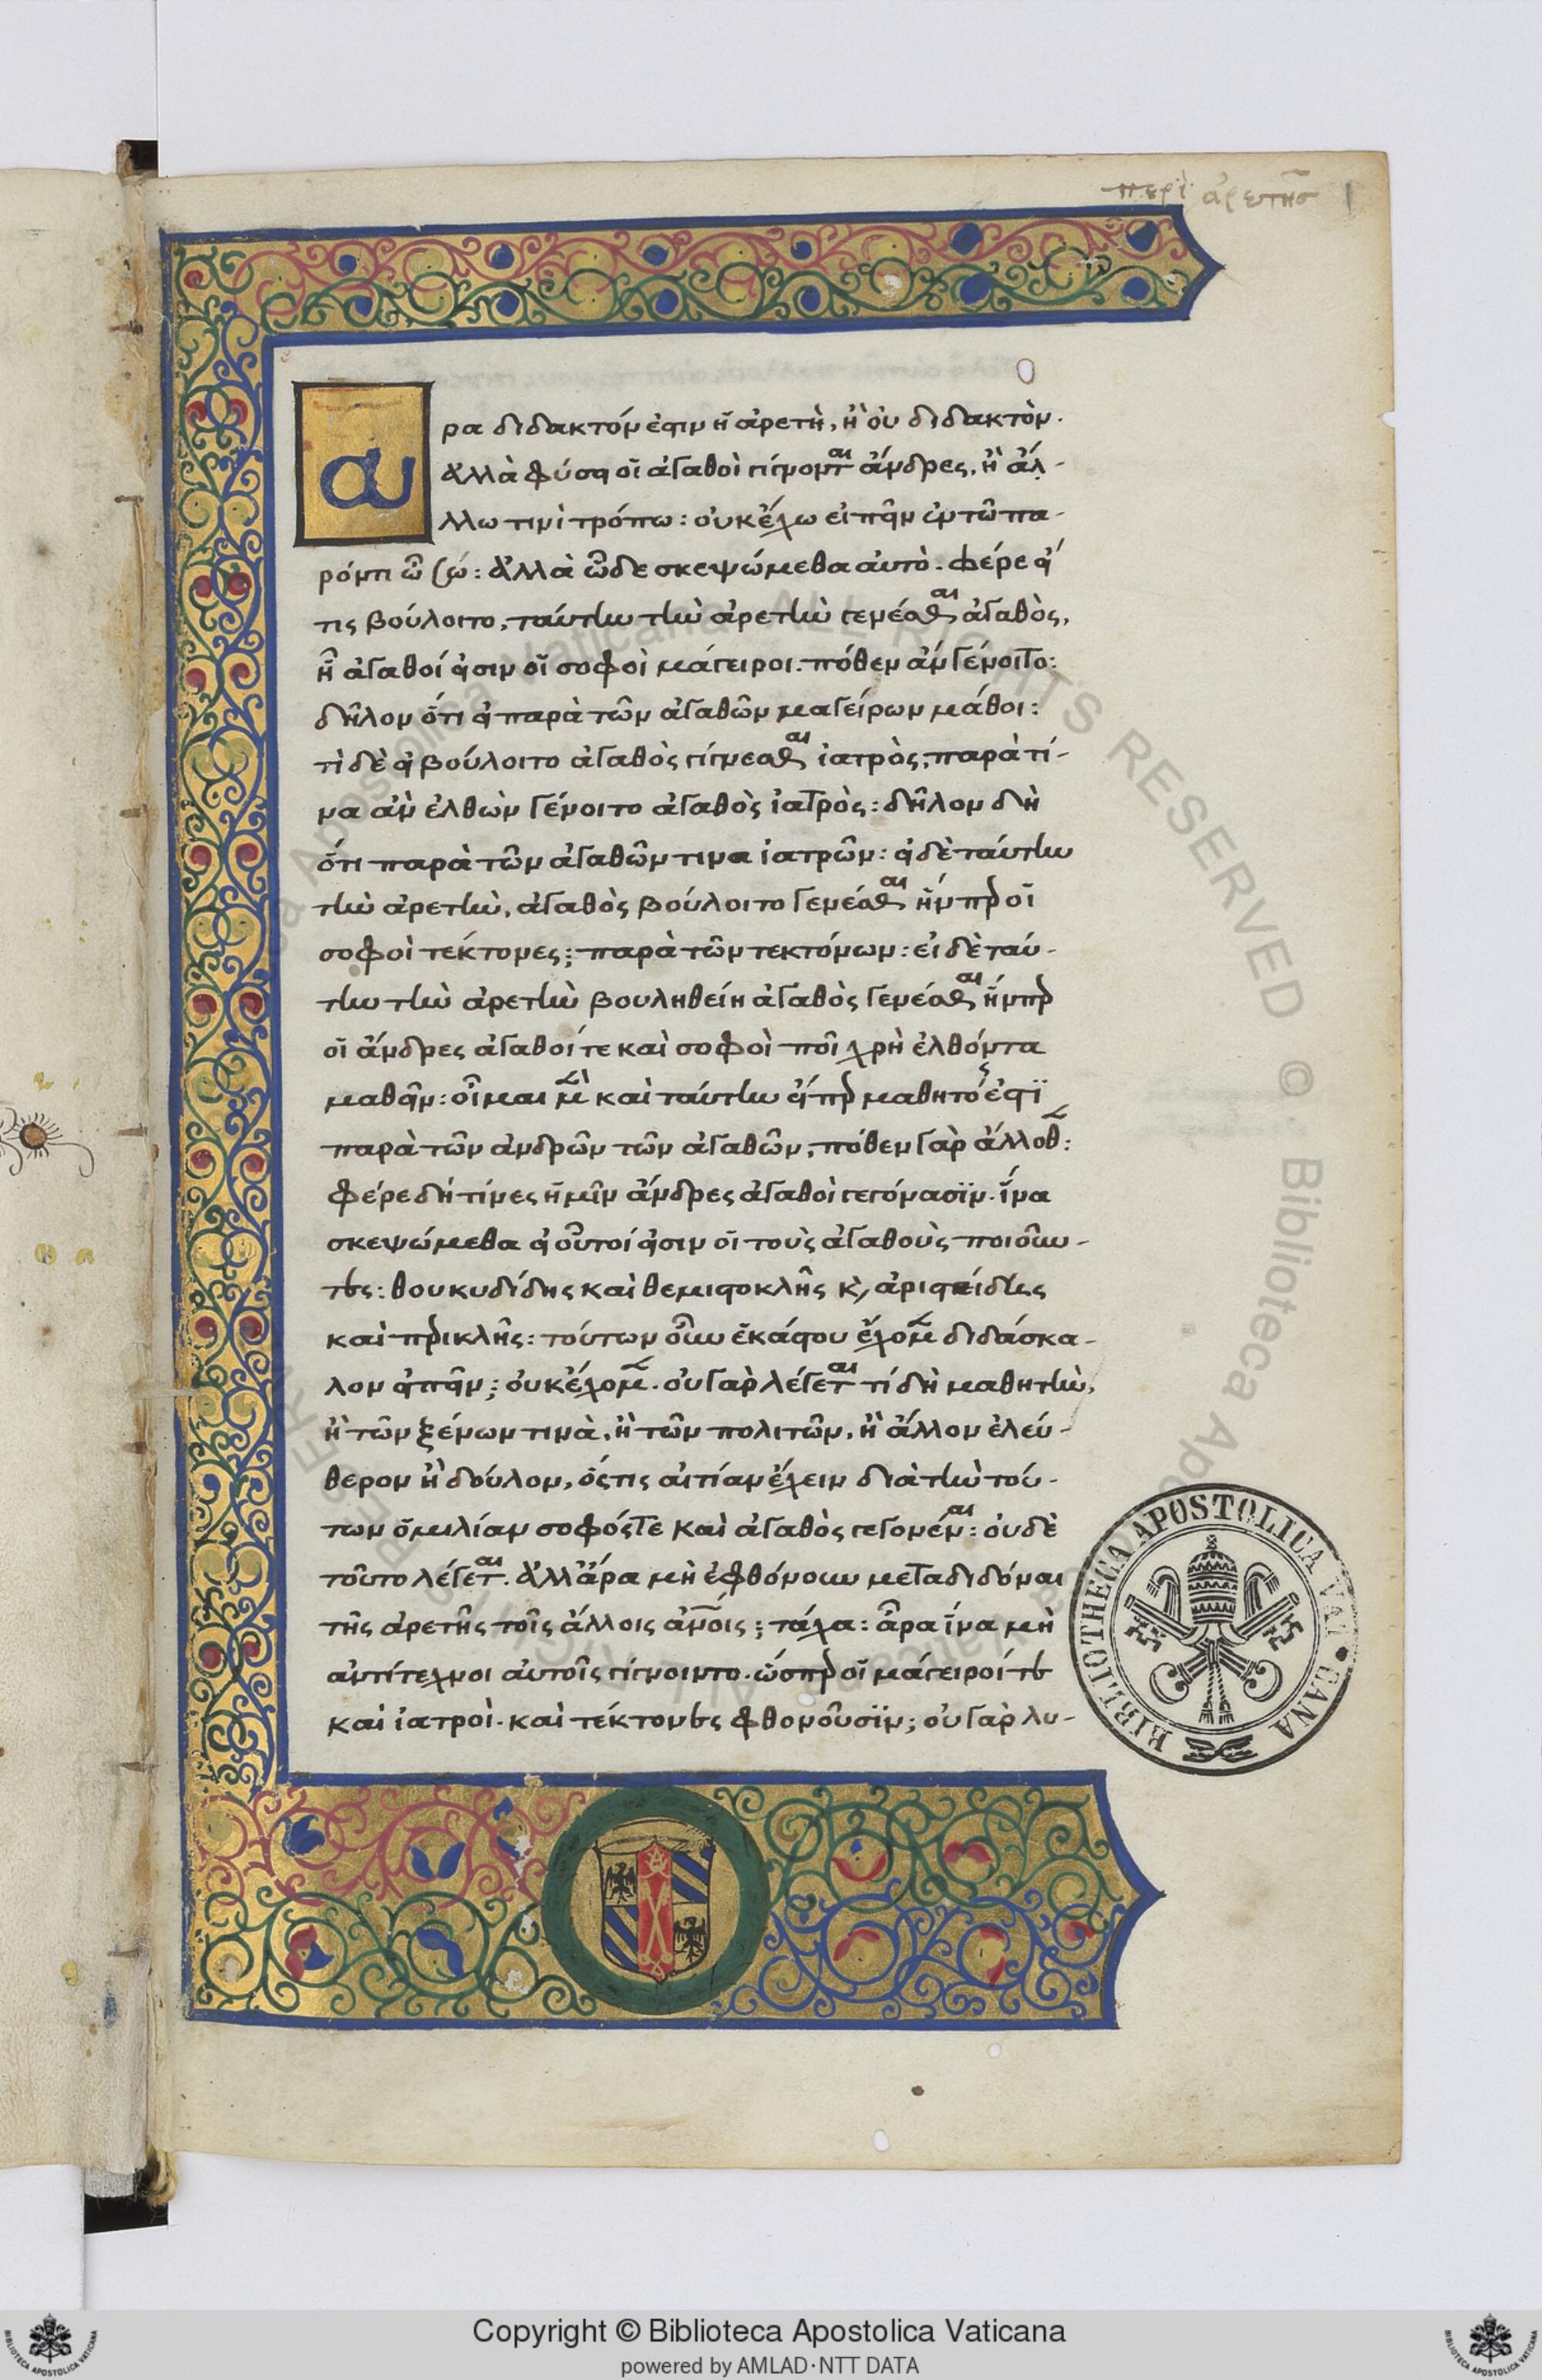 περὶ ἀρετῆσ 1
α
ρα διδακτόν ἐστιν ἡ ἀρετὴ, ἢ οὐ διδακτὸν.
ἀλλὰ φύσει οἱ ἀγαθοὶ γίγνονται ἄνδρες, ἢ ἄλ-
λω τινὶ τρόπω: οὐκ ἔχω εἰπεῖν ἐν τῶ πα-
ρόντι ὦ σώ: ἀλλὰ ὧδε σκεψώμεθα αὐτὸ. φέρε εἴ
τις βούλοιτο, ταύτην τὴν ἀρετὴν γενέσθαι ἀγαθὸς,
ἧ ἀγαθοί εἰσιν οἱ σοφοὶ μάγειροι. πόθεν ἂν γένοιτο:
δῆλον ὅτι εἰ παρὰ τῶν ἀγαθῶν μαγείρων μάθοι:
τὶ δὲ εἰ βούλοιτο ἀγαθὸς γίγνεσθαι ἰατρὸς; παρὰ τί-
να ἂν ἐλθὼν γένοιτο ἀγαθὸς ἰατρὸς: δῆλον δὴ
ὅτι παρὰ τῶν ἀγαθῶν τινα ἰατρῶν: εἰ δὲ ταύτην
τὴν ἀρετὴν, ἀγαθὸς βούλοιτο γενέσθαι ἥνπερ οἱ
σοφοὶ τέκτονες; παρὰ τῶν τεκτόνων: εἰ δὲ ταύ-
την τὴν ἀρετὴν βουληθείη ἀγαθὸς γενέσθαι ἥνπερ
οἱ ἄνδρες ἀγαθοί τε καὶ σοφοὶ ποῖ χρὴ ἐλθόντα
μαθεῖν: οἶμαι μὲν καὶ ταύτην εἴπερ μαθητός ἐστϊ
παρὰ τῶν ἀνδρῶν τῶν ἀγαθῶν, πόθεν γὰρ ἄλλοθεν:
φέρε δή τίνες ἡμῖν ἄνδρες ἀγαθοὶ γεγόνασϊν. ἵνα
σκεψώμεθα εἰ οὗτοί εἰσιν οἱ τοὺς ἀγαθοὺς ποιοῦν-
τες: θουκυδίδης καὶ θεμιστοκλῆς κὶ ἀριστείδης
καὶ περικλῆς: τούτων οὖν ἑκάστου ἔχομεν διδάσκα-
λον εἰπεῖν; οὐκ ἔχομεν. οὐ γὰρ λέγεται τί δὴ μαθητὴν,
ἢ τῶν ξένων τινὰ, ἢ τῶν πολιτῶν, ἢ ἄλλον ἐλεύ-
θερον ἢ δούλον, ὅςτις αἰτίαν ἔχειν διὰ τὴν τού-
των ὁμιλίαν σοφόςτε καὶ ἀγαθὸς γεγονέναι: οὐδὲ
τοῦτο λέγεται. ἀλλ' ἄρα μὴ ἐφθόνουν μεταδιδόναι
τῆς ἀρετῆς τοῖς ἄλλοις ἀνοις; τάχα: ἆρα ἵνα μὴ
ἀντίτεχνοι αὐτοῖς γίγνοιντο. ὥσπερ οἱ μάγειροί τε
καὶ ἰατροὶ. καὶ τέκτονες φθονοῦσϊν; οὐ γὰρ λυ-
BIBLIOTHECA APOSTOLICA VATICANA
Copyright © Biblioteca Apostolica Vaticana
powered by AMLAD·NTT DATA